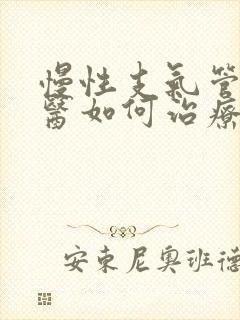 慢性支氣管
醫如何治療
安東尼奧班德